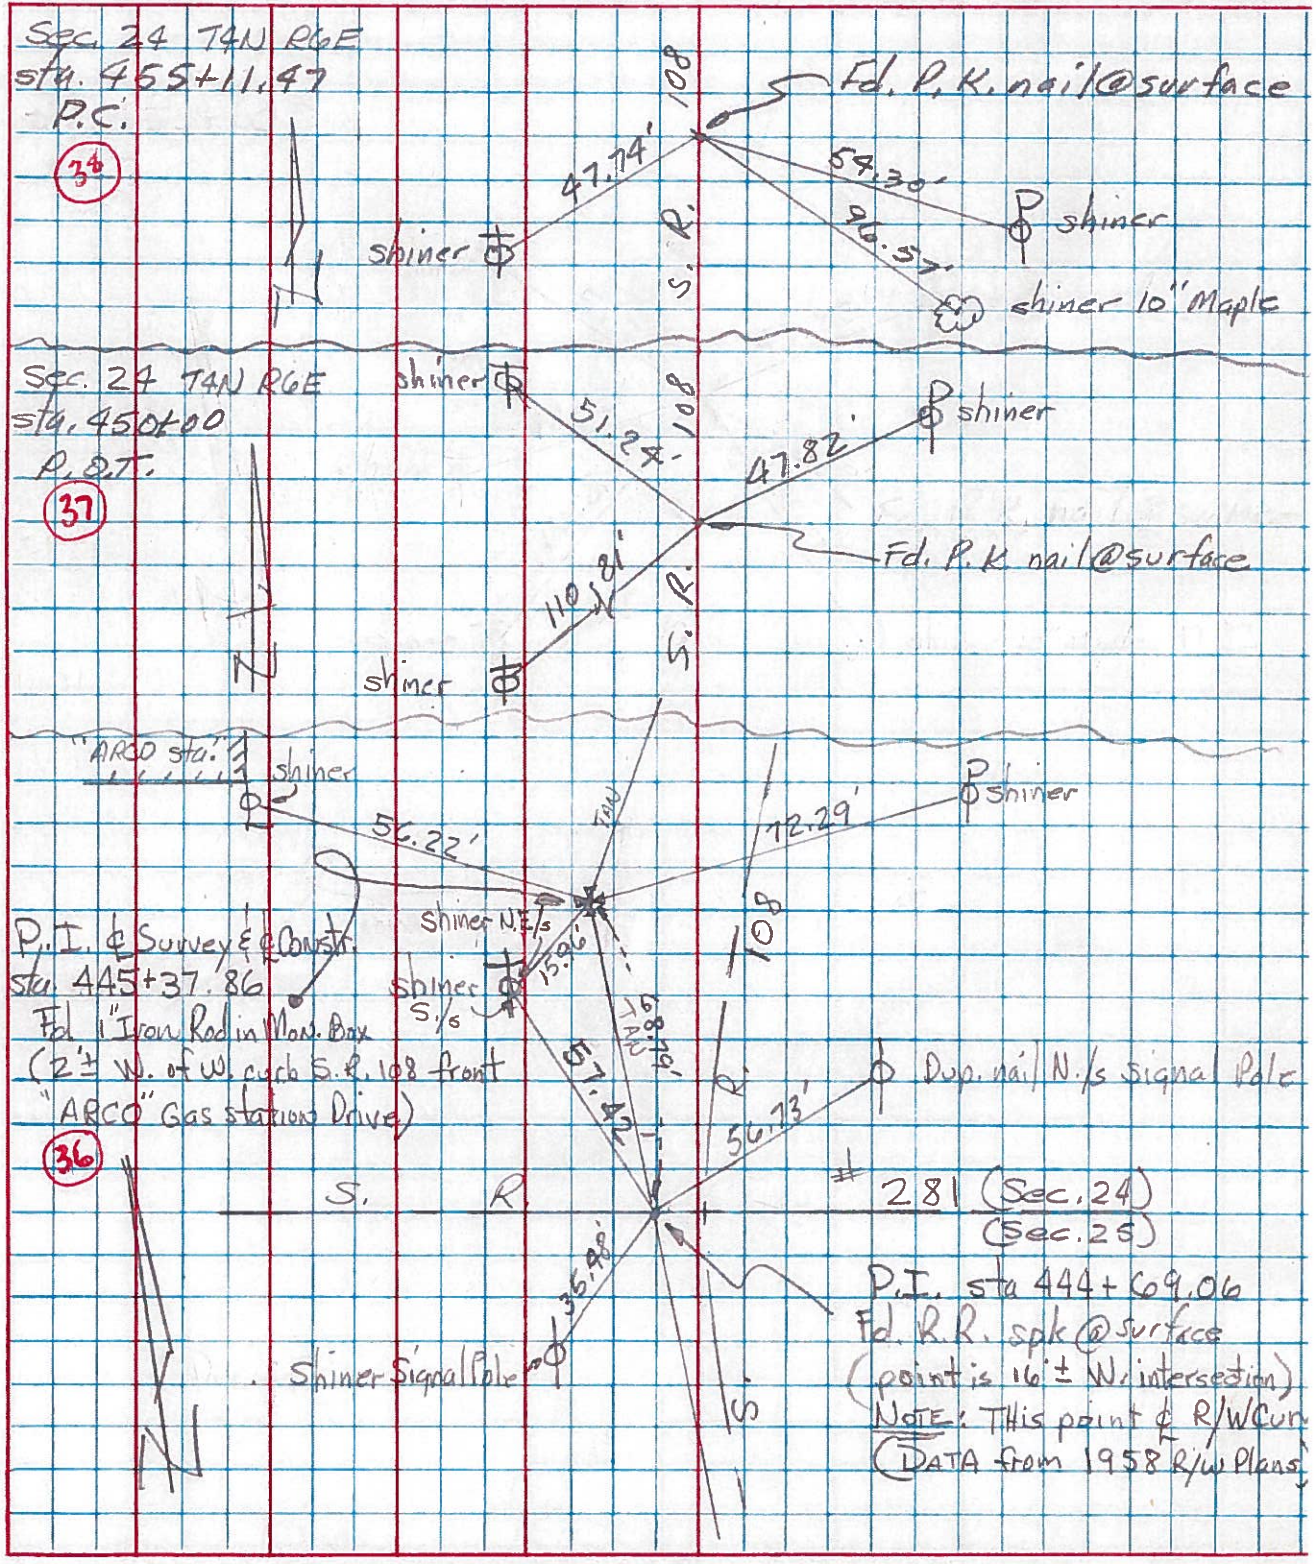 Sec. 24 T4N R6E
sta. 455+11.47
P.C.
38
108
S. R.
Fd. P.K. nail@surface
47.74'
54.30'
96.57'
shiner
shiner
shiner 10" Maple
Sec. 24 T4N R6E
sta. 450+00
P.O.T.
37
N
shiner
51.24'
108
shiner
47.82'
Fd. P.K. nail@surface
110.81'
S. R.
shiner
N
"ARCO sta."
shiner
shiner
56.22'
TAN
72.29'
108
shiner N.E/s
15.96'
P.I. ℄ Survey & ℄ Constr.
sta. 445+37.86
Fd. 1" Iron Rod in Mon. Box
(2'± W. of W. curb S.R. 108 front
"ARCO" Gas station Drive)
36
shiner
S./s
68.79'
TAN
57.42
R.
56.73'
Dup. nail N./s Signal Pole
S. R. # 281 (Sec. 24)
(Sec. 25)
35.48'
Shiner Signal Pole
P.I. sta 444+69.06
Fd. R.R. spk @ surface
(point is 16'± W. intersection)
NOTE: THis point ℄ R/W Cur
(DATA from 1958 R/W Plans)
S.
N